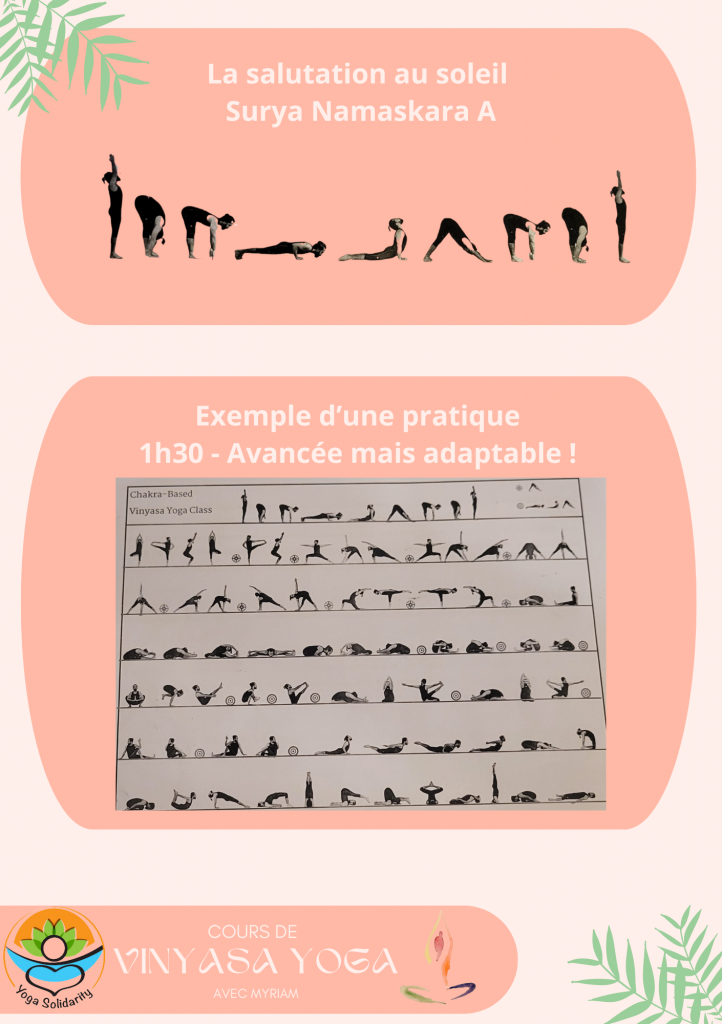 La salutation au soleil
Surya Namaskara A
Exemple d’une pratique
1h30 - Avancée mais adaptable !
Chakra-Based
Vinyasa Yoga Class
COURS DE
VINYASA YOGA
AVEC MYRIAM
Yoga Solidarity